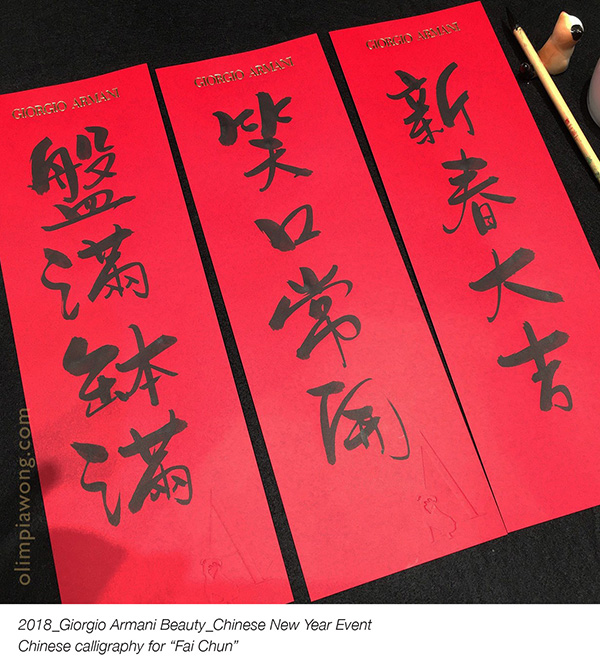 GIORGIO ARMANI
盤滿鉢滿
GIORGIO ARMANI
笑口常開
GIORGIO ARMANI
新春大吉
olimpiawong.com
2018_Giorgio Armani Beauty_Chinese New Year Event
Chinese calligraphy for “Fai Chun”